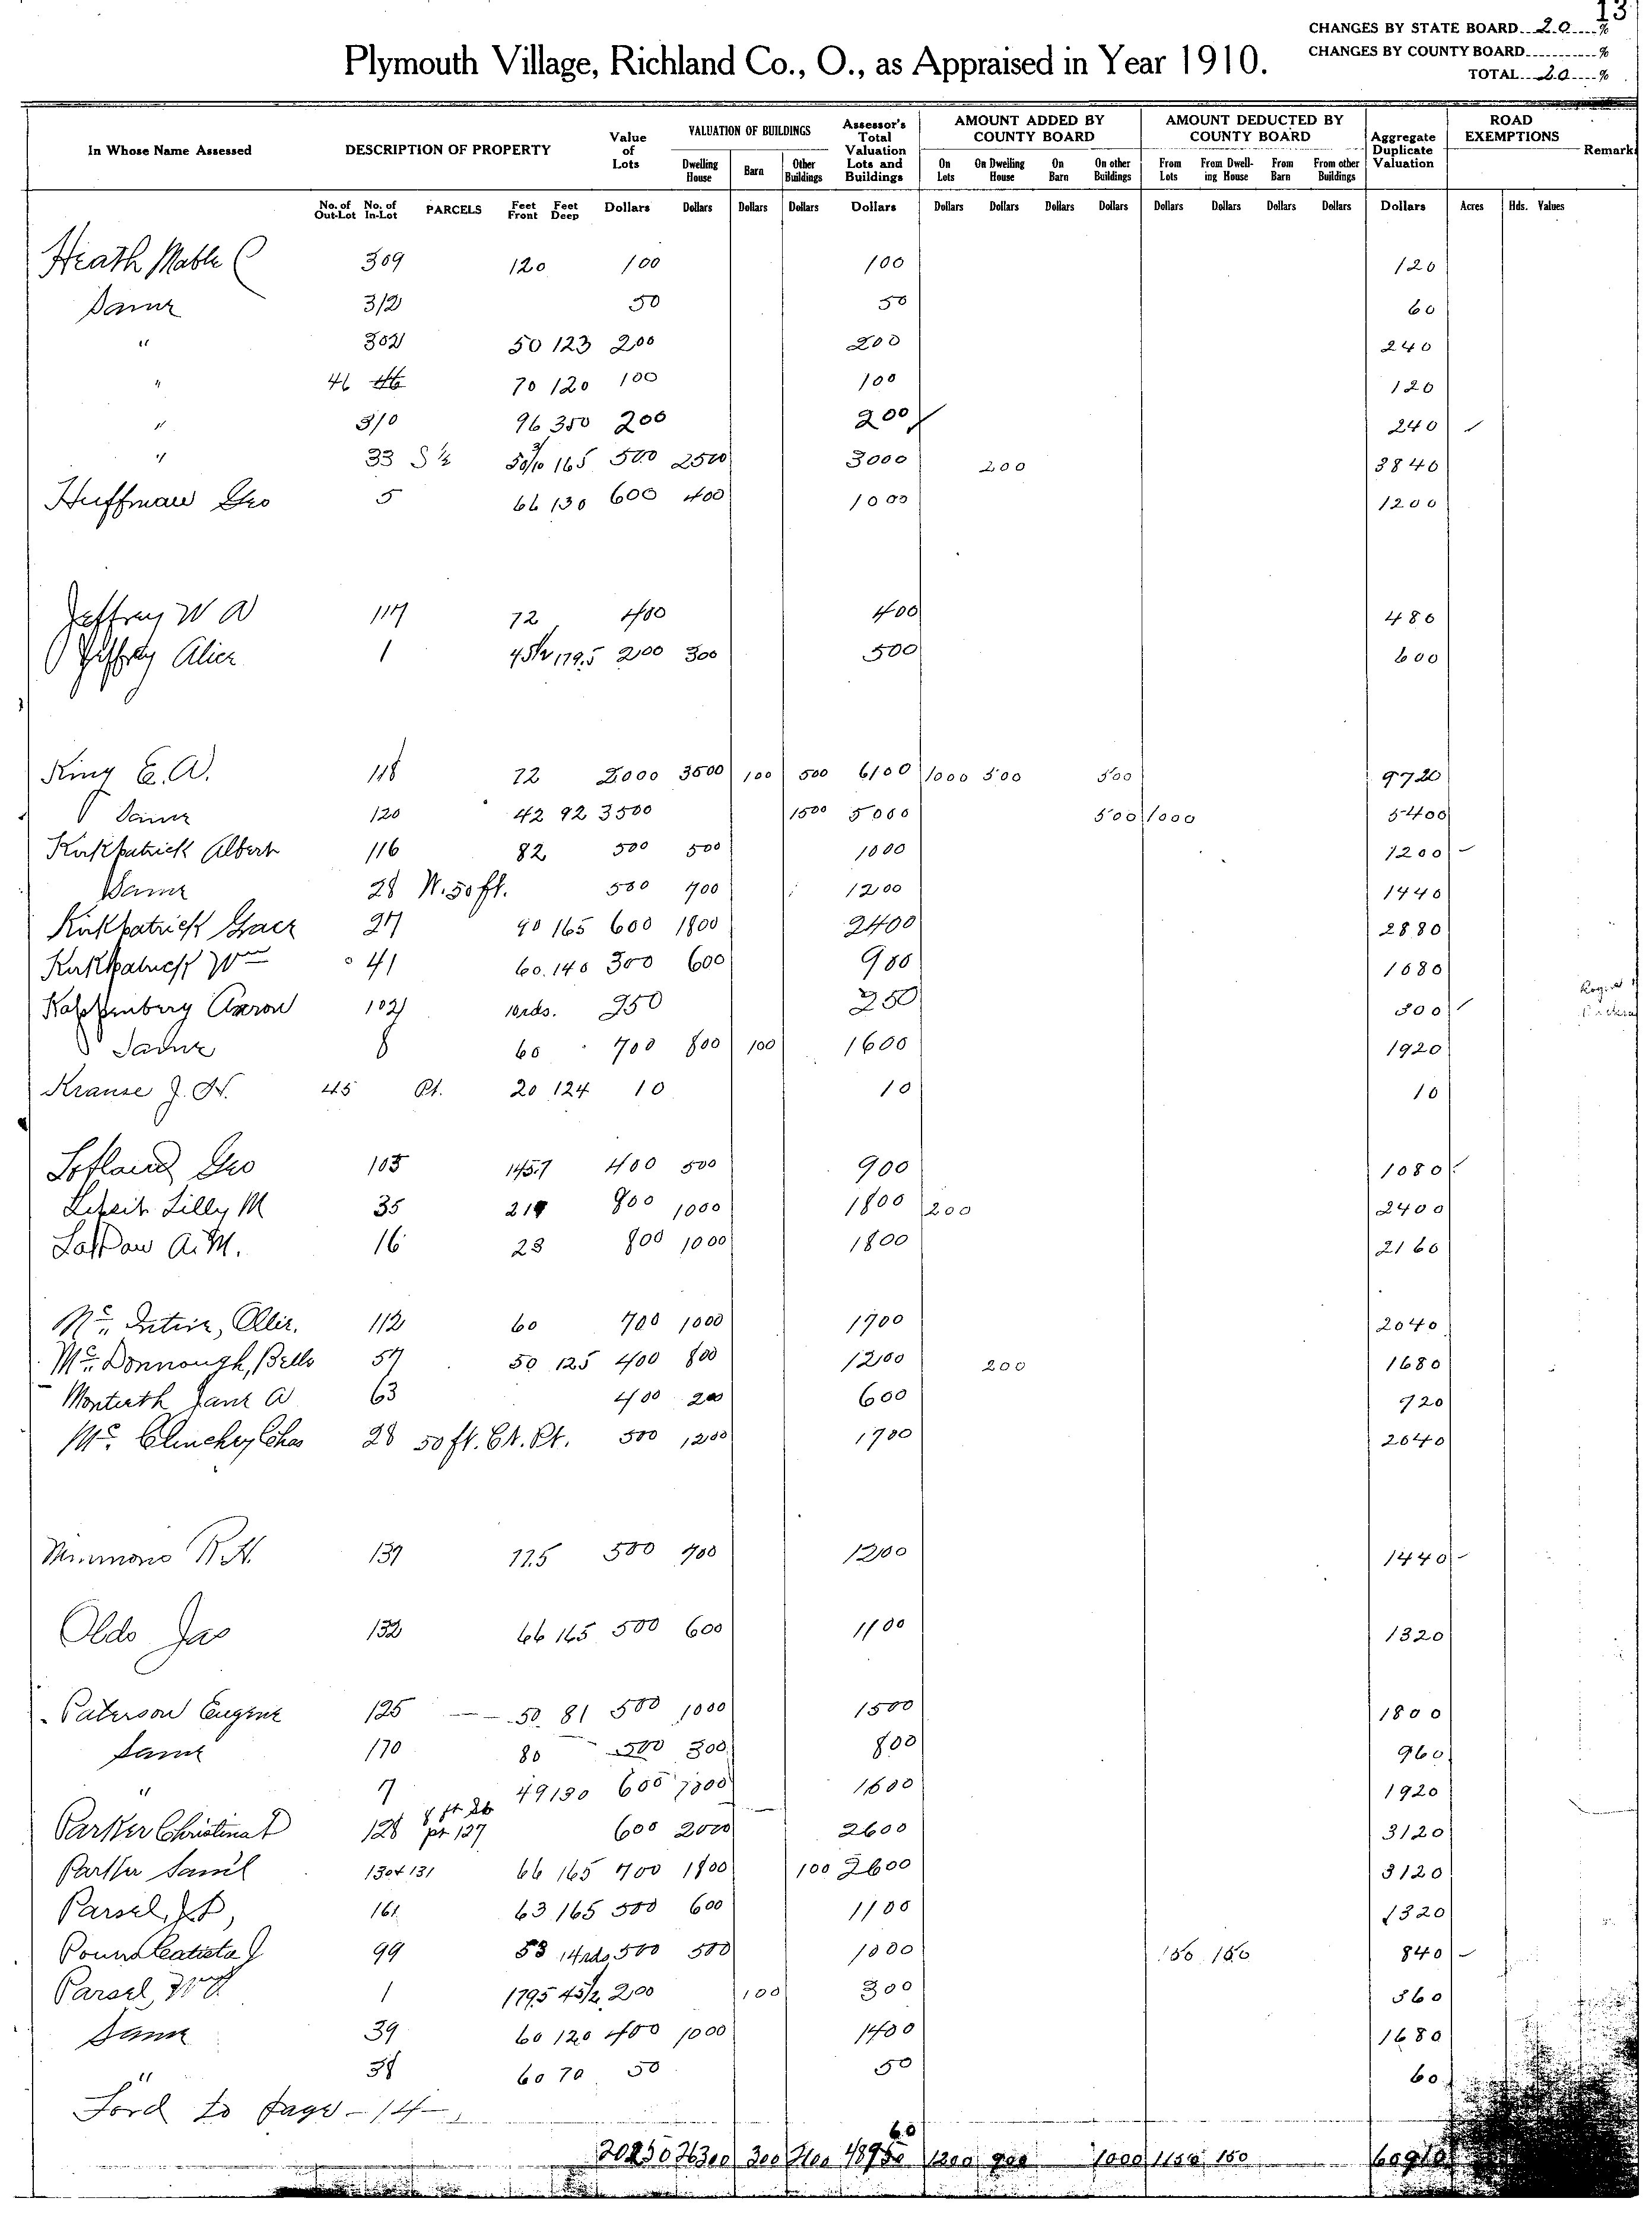 13
CHANGES BY STATE BOARD 20 %
CHANGES BY COUNTY BOARD %
TOTAL 20 %
Plymouth Village, Richland Co., O., as Appraised in Year 1910.
In Whose Name Assessed DESCRIPTION OF PROPERTY Value of Lots VALUATION OF BUILDINGS Assessor's Total Valuation Lots and Buildings AMOUNT ADDED BY COUNTY BOARD AMOUNT DEDUCTED BY COUNTY BOARD Aggregate Duplicate Valuation ROAD EXEMPTIONS Remark
Dwelling House Barn Other Buildings On Lots On Dwelling House On Barn On other Buildings From Lots From Dwelling House From Barn From other Buildings
No. of Out-Lot No. of In-Lot PARCELS Feet Front Feet Deep Dollars Dollars Dollars Dollars Dollars Dollars Dollars Dollars Dollars Dollars Dollars Dollars Dollars Dollars Acres Hds. Values
Heath Mable C 309 120 100 100 120
Same 312 50 50 60
" 302 50 123 200 200 240
" 46 70 120 100 100 120
" 310 96 350 200 200 240
" 33 S ½ 50 3/10 165 500 2500 3000 200 3840
Huffman Geo 5 66 130 600 400 1000 1200
Jeffrey W A 117 72 400 400 480
Jeffrey Alice 1 45½ 179.5 200 300 500 600
King E. A. 118 72 2000 3500 100 500 6100 1000 500 500 9720
Same 120 42 92 3500 1500 5000 500 1000 5400
Kirkpatrick Albert 116 82 500 500 1000 1200
Same 28 W. 50 ft. 500 700 1200 1440
Kirkpatrick Grace 27 90 165 600 1800 2400 2880
Kirkpatrick Wm 41 60 140 300 600 900 1080
Kappenberg Aaron 102 10rds. 250 250 300
Same 8 60 700 800 100 1600 1920
Krause J. H. 45 Pt. 20 124 10 10 10
Lofland Geo 105 145.7 400 500 900 1080
Lilly M 35 219 800 1000 1800 200 2400
A. M. 16 23 800 1000 1800 2160
Mc. Intire, Allie. 112 60 700 1000 1700 2040
Mc. Donnough, Belle 57 50 125 400 800 1200 200 1680
Monteith Jane A 63 400 200 600 720
Mc. Clinchey Chas 28 50 ft. Ct. Pt. 500 1200 1700 2040
R. H. 139 115 500 700 1200 1440
Olds Jas 132 66 165 500 600 1100 1320
Paterson Eugene 125 50 81 500 1000 1500 1800
Same 170 80 500 300 800 960
" 7 49 130 600 1000 1600 1920
Parker Christina 128 pt 127 600 2000 2600 3120
Parker Saml 130+131 66 165 700 1800 100 2600 3120
Parsel, 161 63 165 500 600 1100 1320
99 53 14rds 500 500 1000 150 150 840
Parsel, Wm 1 179.5 45½ 200 100 300 360
Same 39 60 120 400 1000 1400 1680
" 38 60 70 50 50 60
Ford to page - 14 -
300 2100 1200 900 1000 1150 150 60910